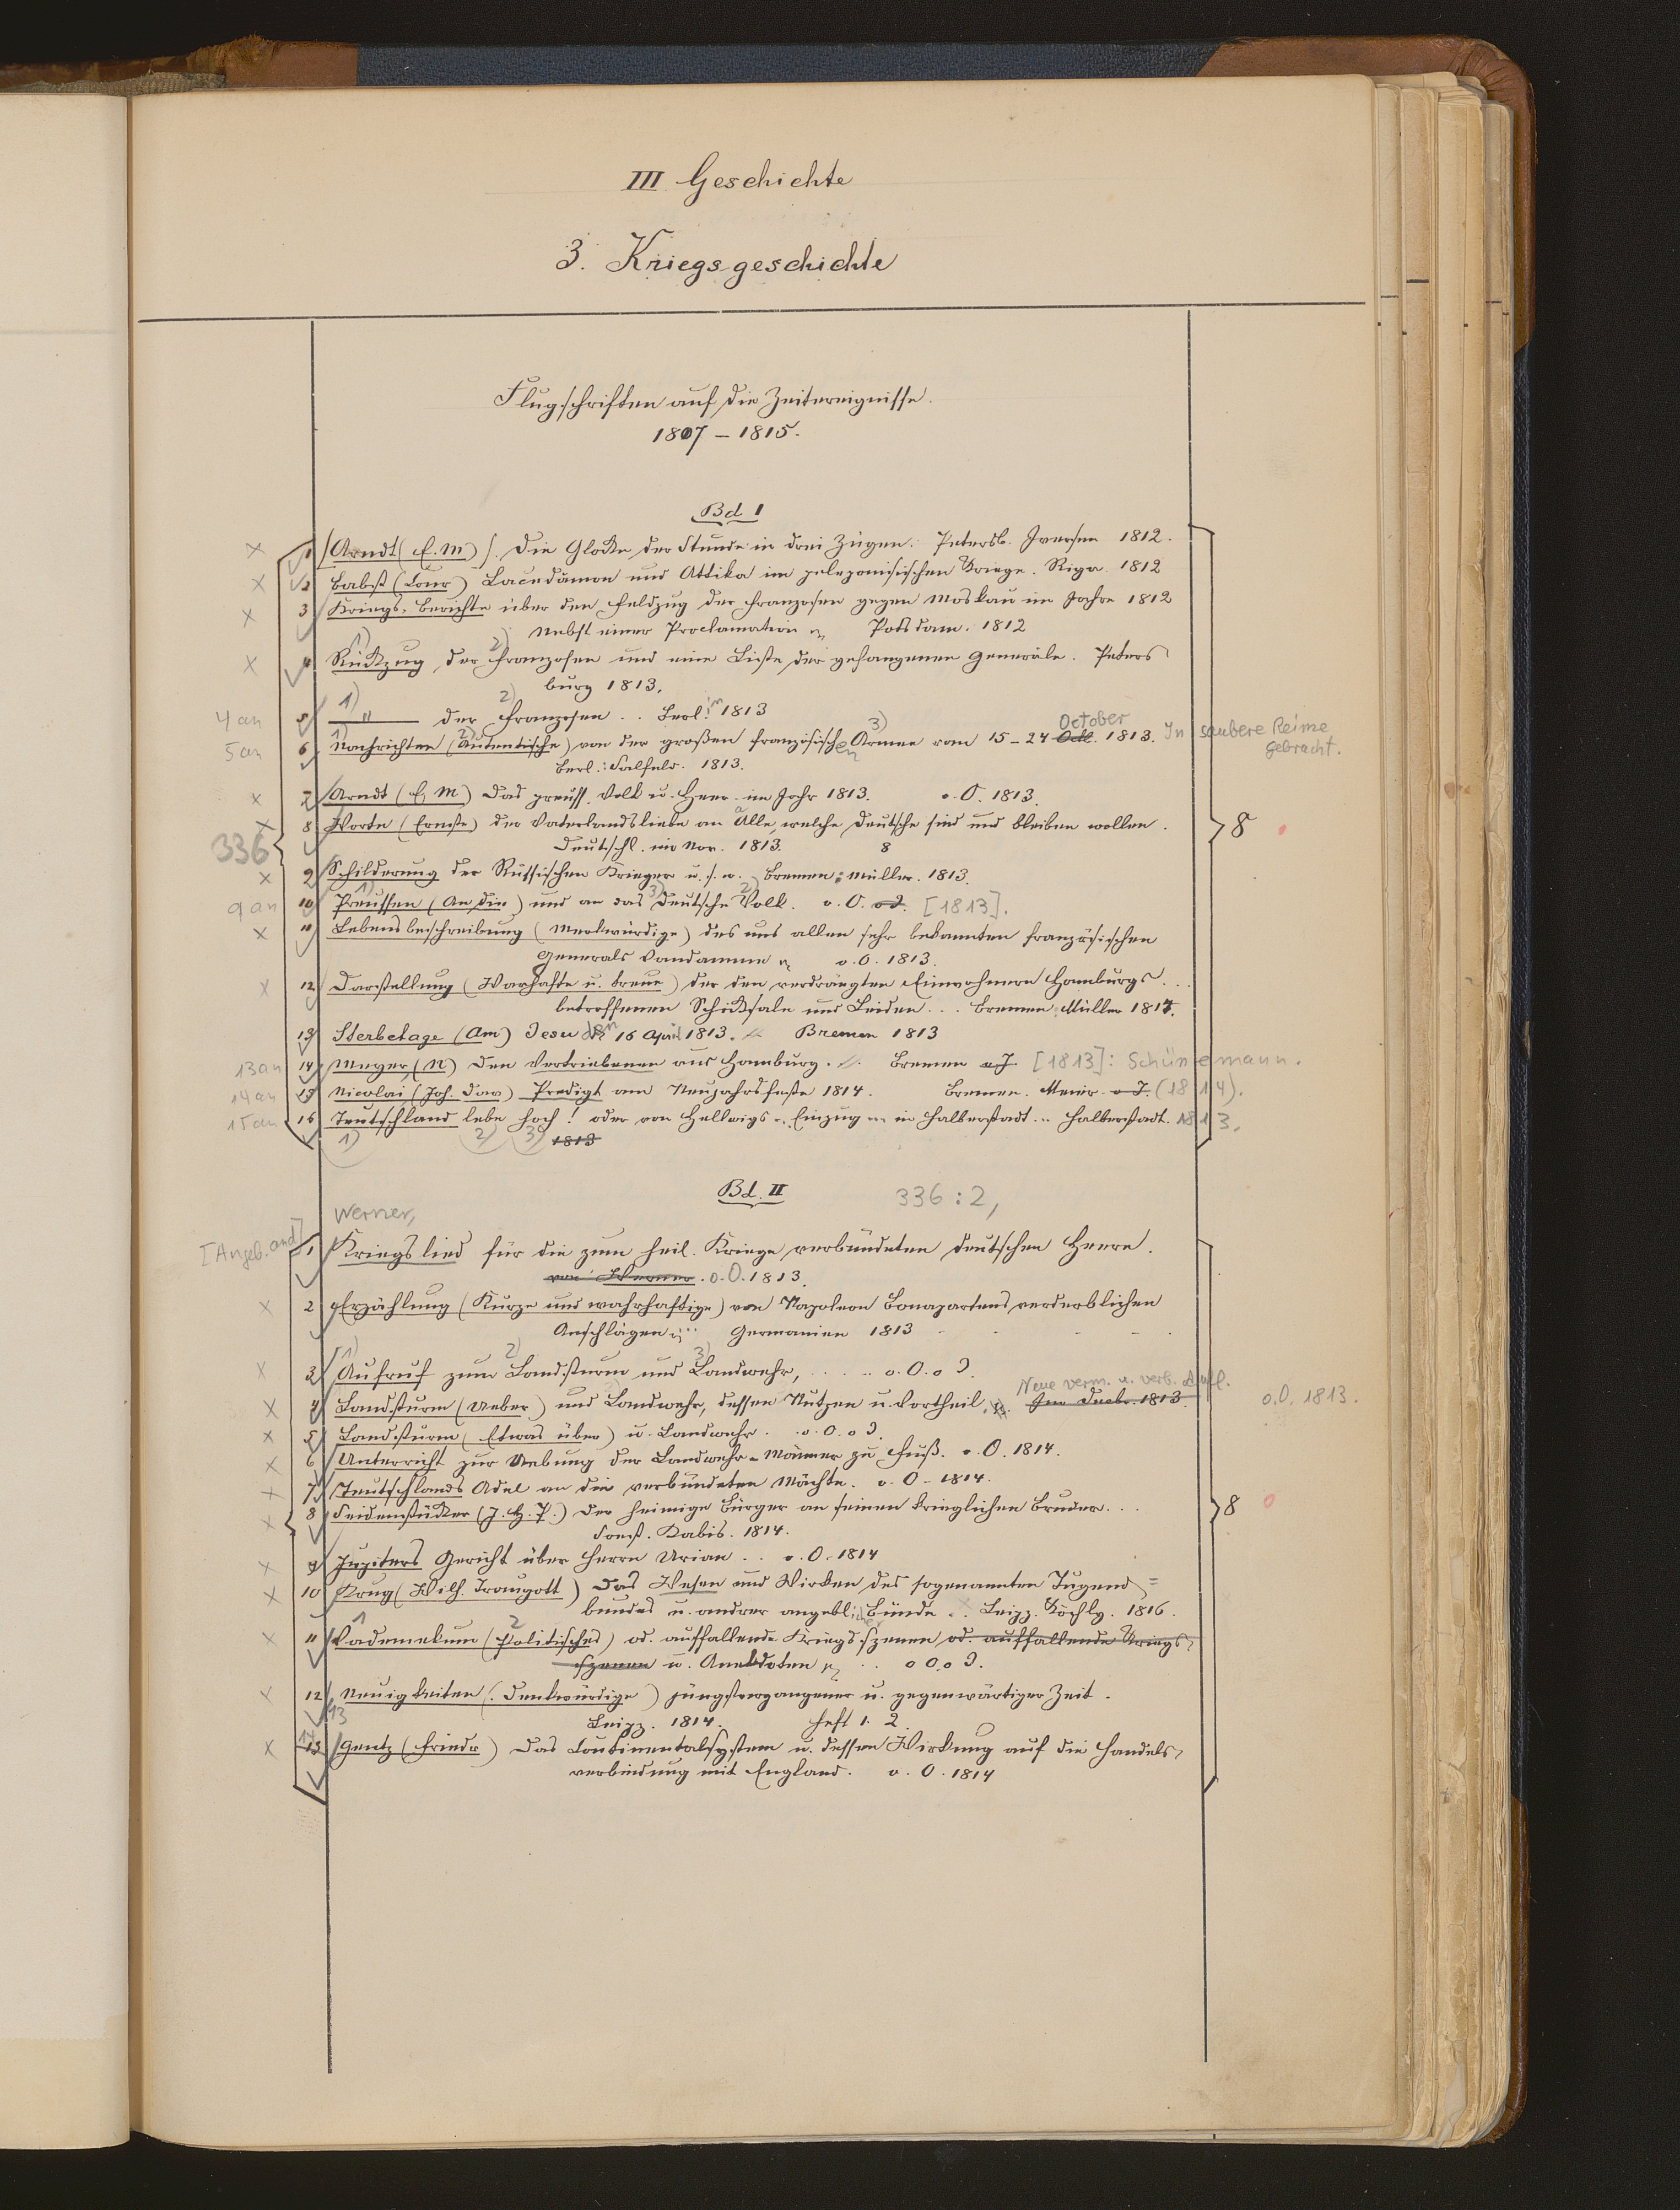 III Geschichte
3. Kriegsgeschichte
Flugschriften auf die Zeitereignisse.
1807 – 1815.
Bd I
× 1 [Arndt (E. M.)]. Die Glocke der Stunde in drei Zügen. Petersb. Iversen 1812.
× 2 Babst Lacedämon und Attika im peleponisischen Kriege. Riga. 1812
× 3 Kriegs-Berichte über den Feldzug der Franzosen gegen Moskau im Jahre 1812
Nebst einer Proclamation Potsdam. 1812
× 4 Rückzug der Franzosen und eine Liste der gefangenen Generäle. Peters
burg 1813.
4 an 5 " der Franzosen .. Berlin 1813
5 an 6 Nachrichten (Autentische) von der großen französischen Armee vom 15–24 October 1813. In saubere Reime
gebracht.
Berl.: Salfeld. 1813.
× 7 Arndt (E M) Das preuss. Volk u. Heer im Jahr 1813. o. O. 1813.
× 8 Worte (Ernste) der Vaterlandsliebe an Alle, welche Deutsche sind und bleiben wollen.
336 Deutschl. im Nov. 1813. 8
8
× 9 Schilderung der Russischen Krieger u. s. w. Bremen: Müller. 1813.
9 an 10 Preussen (An die) und an das Deutsche Volk. o. O. o J. [1813].
× 11 Lebensbeschreibung (Merkwürdige) des uns allen sehr bekannten französischen
Generals Vandamme o. O. 1813.
× 12 Darstellung (Warhafte u. treue) der den verdrängten Einwohnern Hamburgs ...
betroffenen Schicksale und Leiden ... Bremen: Müller 1814.
13 Sterbetage (Am) Jesu den 16 April 1813. Bremen 1813
13 an 14 Meyer (N) Den Vertriebenen aus Hamburg. Bremen o J [1813]: Schünemann.
14 an 15 Nicolai (Joh. Dav) Predigt am Neujahrsfeste 1814. Bremen. Meier. o J. (1814).
15 an 16 Teutschland lebe hoch! oder von Hellwigs Einzug in Halberstadt .. Halberstadt. 1813.
1) 2) 3) 1813
Bd. II 336 : 2,
Werner,
[Angeb. and] 1 Kriegslied für die zum heil. Kriege verbündeten deutschen Heere.
von Werner. o. O. 1813.
× 2 Erzählung (Kurze und wahrhaftige) von Napoleon Bonapartens verderblichen
Anschlägen Germanien 1813
× 3 Aufruf zum Landsturm und Landwehr, .... o. O. o J.
Neue verm. u. verb. Aufl.
× 4 Landsturm (Ueber) und Landwehr, dessen Nutzen u. Vortheil, 1813. o. O. 1813.
× 5 Landsturm (Etwas über) u. Landwehr. o. O. o J.
× 6 Unterricht zur Uebung der Landwehr-Männer zu Fuß. o. O. 1814.
× 7 Teutschlands Adel an die verbündeten Mächte. o. O – 1814.
× 8 Seidenstücker (J. H. P.) Der heimige Bürger an seinen krieglichen Bruder ...
8
Soest. Kabis. 1814.
× 9 Jupiters Gericht über Herrn Urian .. o. O. 1814
× 10 Krug (Wilh. Traugott) Das Wesen und Wirken des sogenannten Tugend=
bundes u. andrer angeblicher Bünde .. Leipz. Köchly. 1816.
× 11 Vademekum (Politisches) od. auffallende Kriegsszenen od. auffallende Kriegs-
szenen u. Anekdoten .. o O. o J.
× 12 Neuigkeiten (Denkwürdige) jüngstvergangener u. gegenwärtiger Zeit.
13 Leipz. 1814. Heft 1. 2.
× 13 Gentz (Friedr) Das Continentalsystem u. dessen Wirkung auf die Handels-
verbindung mit England. o. O. 1814